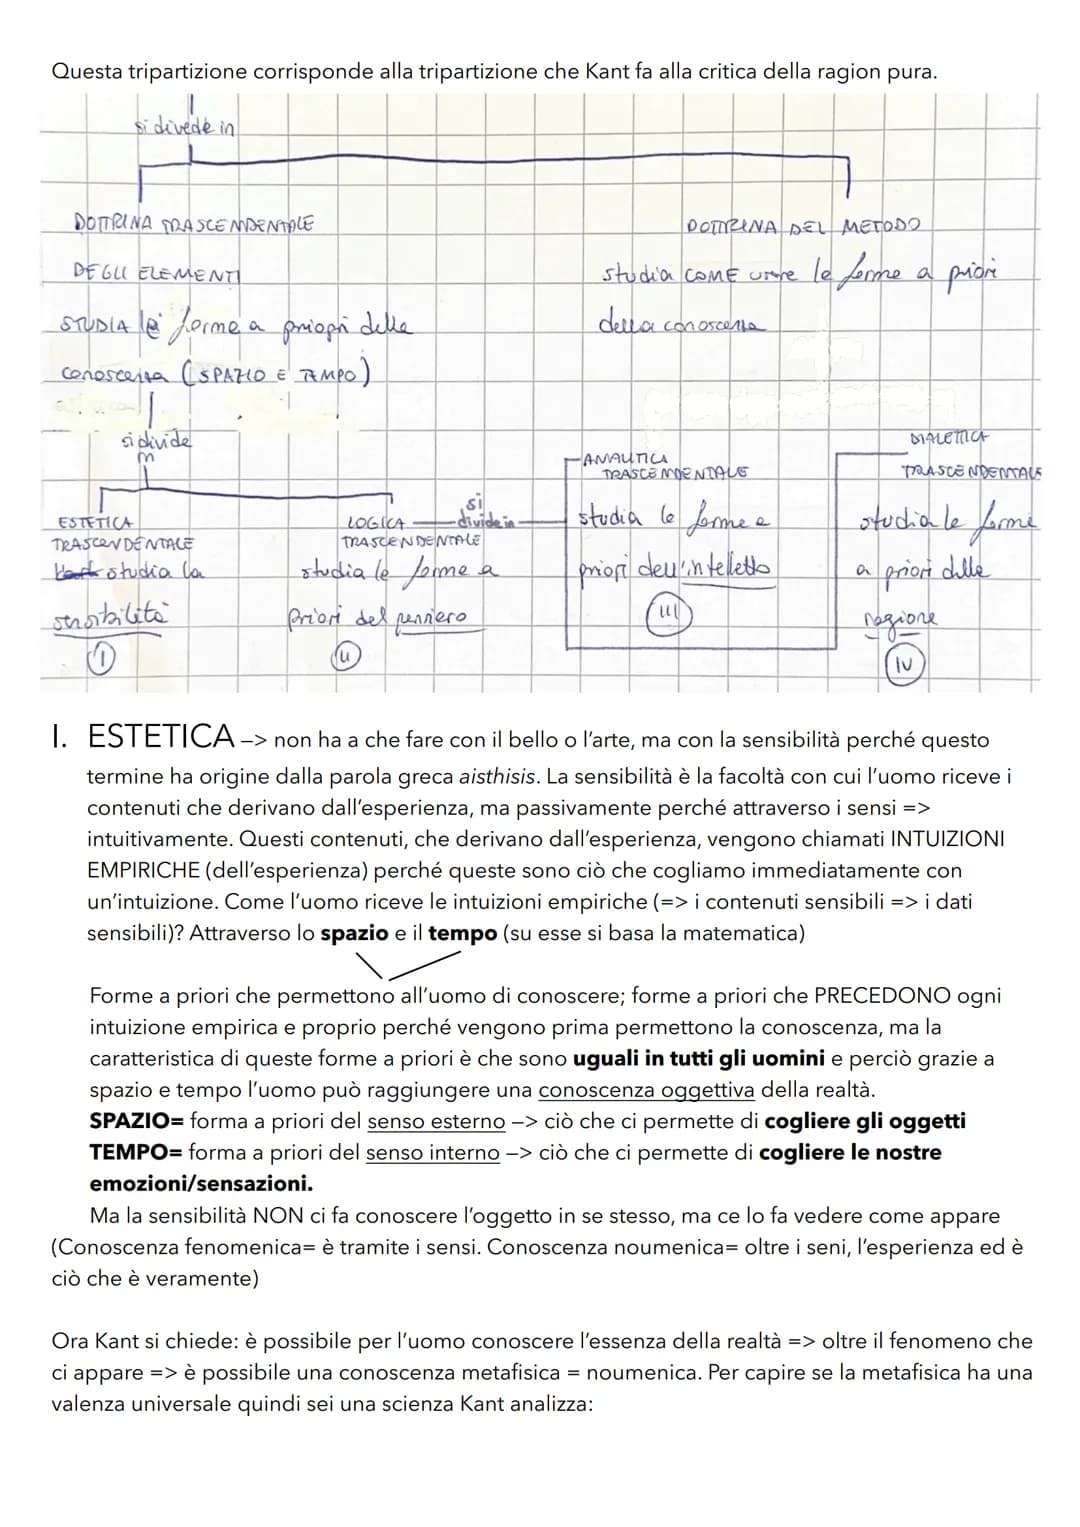 Questa tripartizione corrisponde alla tripartizione che Kant fa alla critica della ragion pura.
si divede in
DOTTRINA TRASCENDENTALE
DEGLI ELEMENTI
STUDIA le forme a priopri delle
conoscenza (SPAZIO E TEMPO)
DOTTRINA DEL METODO
studia COME usare le forme a priori
della conoscenza
si divide
in
ESTETICA
TRASCENDENTALE
studia la
sensibilità
I
LOGICA
TRASCENDENTALE
studia le forme a
priori del pensiero
II
si
divide in
ANALITICA
TRASCENDENTALE
studia le forme a
priori dell'intelletto
III
DIALETTICA
TRASCENDENTALE
studia le forme
a priori della
ragione
IV
I. ESTETICA –> non ha a che fare con il bello o l'arte, ma con la sensibilità perché questo
termine ha origine dalla parola greca aisthisis. La sensibilità è la facoltà con cui l'uomo riceve i
contenuti che derivano dall'esperienza, ma passivamente perché attraverso i sensi =>
intuitivamente. Questi contenuti, che derivano dall'esperienza, vengono chiamati INTUIZIONI
EMPIRICHE (dell'esperienza) perché queste sono ciò che cogliamo immediatamente con
un'intuizione. Come l'uomo riceve le intuizioni empiriche (=> i contenuti sensibili => i dati
sensibili)? Attraverso lo spazio e il tempo (su esse si basa la matematica)
Forme a priori che permettono all'uomo di conoscere; forme a priori che PRECEDONO ogni
intuizione empirica e proprio perché vengono prima permettono la conoscenza, ma la
caratteristica di queste forme a priori è che sono uguali in tutti gli uomini e perciò grazie a
spazio e tempo l'uomo può raggiungere una conoscenza oggettiva della realtà.
SPAZIO= forma a priori del senso esterno –> ciò che ci permette di cogliere gli oggetti
TEMPO= forma a priori del senso interno –> ciò che ci permette di cogliere le nostre
emozioni/sensazioni.
Ma la sensibilità NON ci fa conoscere l'oggetto in se stesso, ma ce lo fa vedere come appare
(Conoscenza fenomenica= è tramite i sensi. Conoscenza noumenica= oltre i seni, l'esperienza ed è
ciò che è veramente)
Ora Kant si chiede: è possibile per l'uomo conoscere l'essenza della realtà => oltre il fenomeno che
ci appare => è possibile una conoscenza metafisica = noumenica. Per capire se la metafisica ha una
valenza universale quindi sei una scienza Kant analizza: